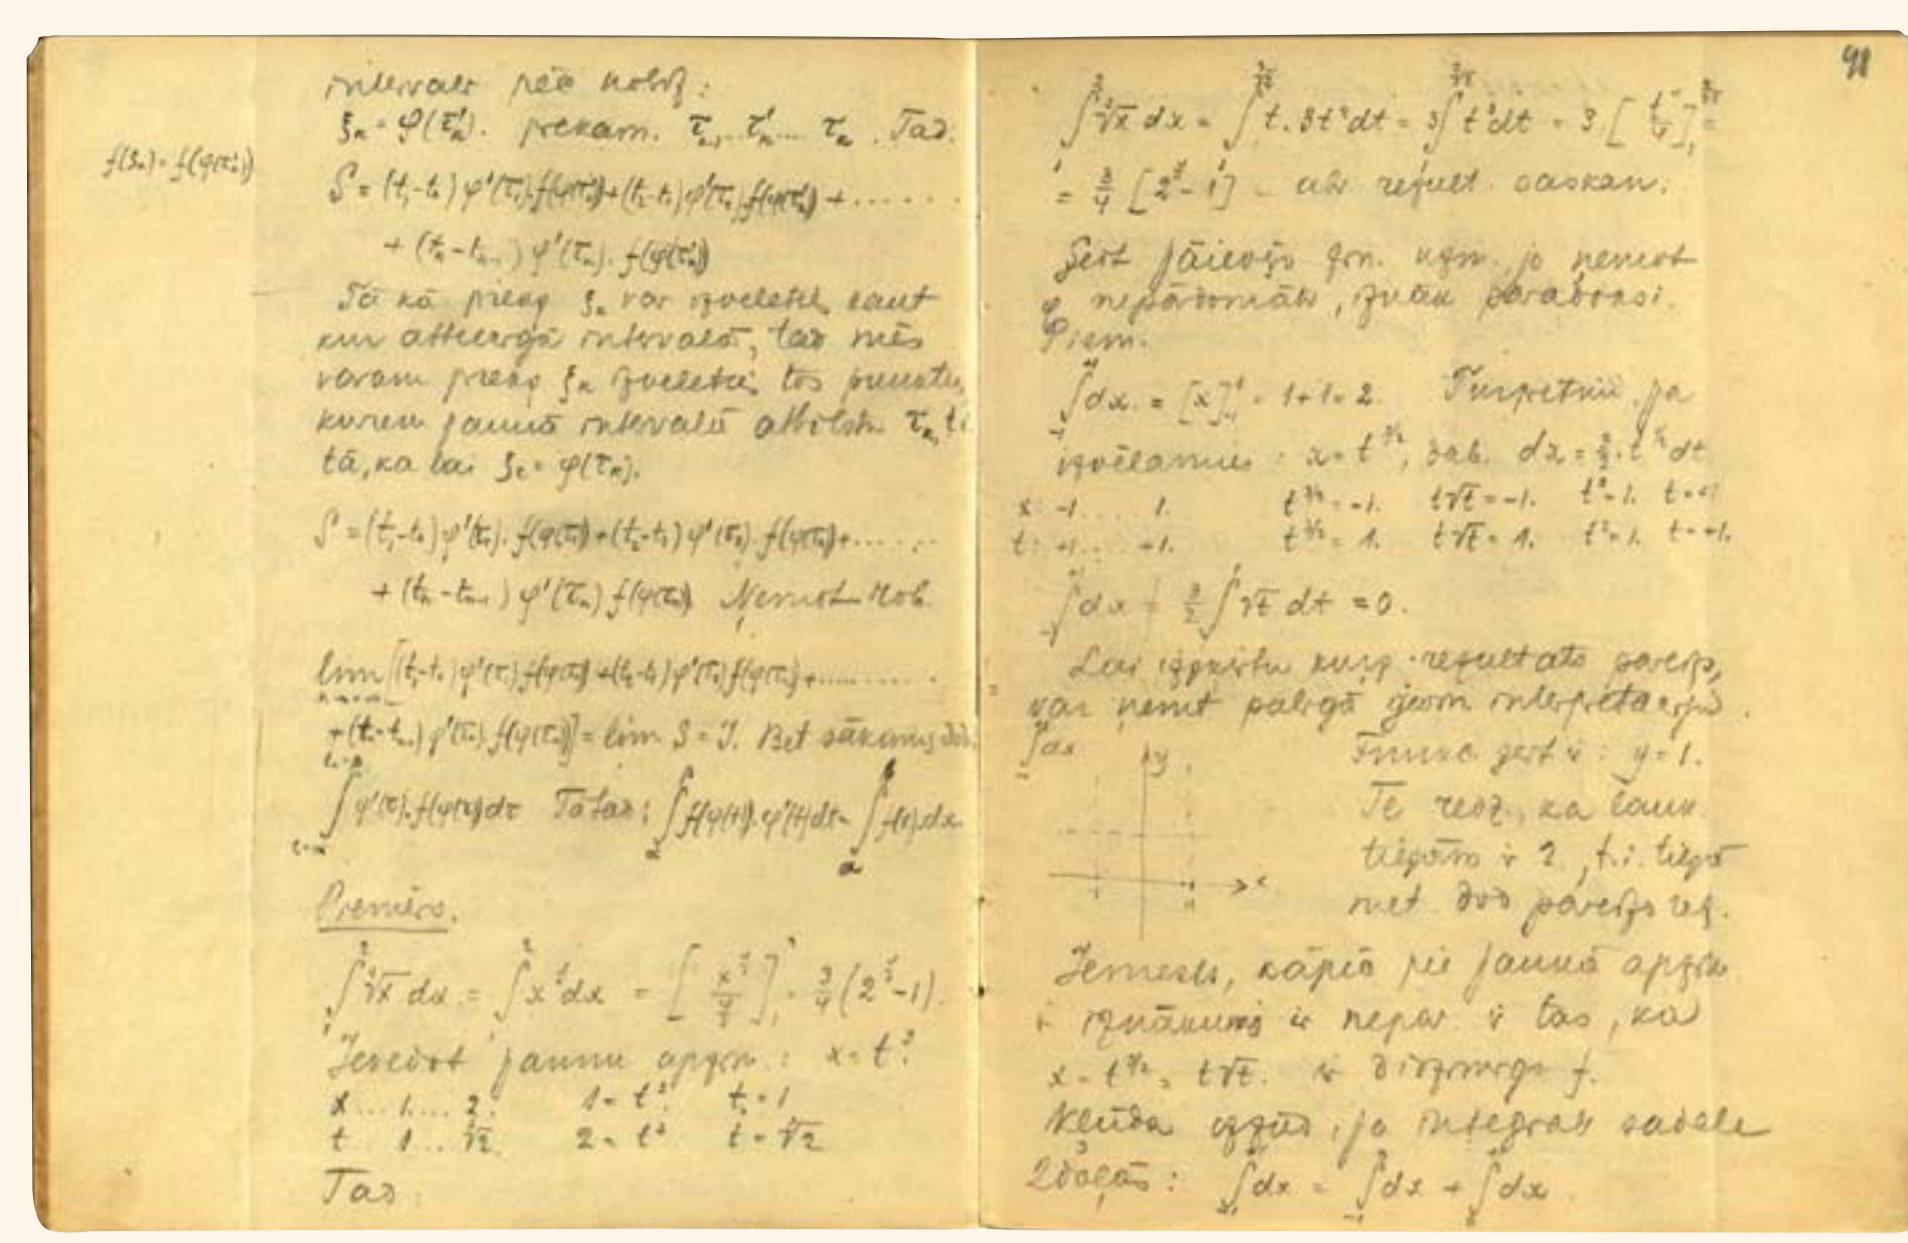 f(ξₙ) = f(φ(τₙ'))
intervals pēc nobīd:
ξₙ = φ(τₙ'). τₙ₋₁ … τₙ' … τₙ. Tad.
S = (t₁-t₀) φ'(τ₁) f(φ(τ₁')) + (t₂-t₁) φ'(τ₂) f(φ(τ₂')) + ......
+ (tₙ-tₙ₋₁) φ'(τₙ). f(φ(τₙ'))
Tā kā ξₙ var izvēlēties kaut
kur attiecīgā intervalā, tad mēs
varam ξₙ izvēlēties tos punktus,
kuriem jaunā intervalā atbilst τₙ,
tā, ka lai ξₙ = φ(τₙ).
S = (t₁-t₀) φ'(τ₁). f(φ(τ₁)) + (t₂-t₁) φ'(τ₂). f(φ(τ₂)) + ......
+ (tₙ-tₙ₋₁) φ'(τₙ) f(φ(τₙ)) Ņemot rob.
lim [(t₁-t₀) φ'(τ₁) f(φ(τ₁)) + (t₂-t₁) φ'(τ₂) f(φ(τ₂)) + ........
+ (tₙ-tₙ₋₁) φ'(τₙ). f(φ(τₙ))] = lim S = J. Bet
∫ φ'(τ). f(φ(τ)) dτ Tātad: ∫ f(φ(t)). φ'(t) dt = ∫ f(x). dx
Piemērs.
∫₁² ∛x dx = ∫₁² x^⅓ dx = [x^(4/3) / (4/3)]₁² = 3/4 (2^(4/3) - 1).
Ievedot jaunu apzīm: x = t³.
x ... 1 .... 2. 1 = t³. t = 1
t 1 ... ∛2. 2 = t³ t = ∛2
Tad:
91
∫₁² ∛x dx = ∫₁^∛2 t. 3t² dt = 3∫₁^∛2 t³ dt = 3 [t⁴/4]₁^∛2 =
= 3/4 [2^(4/3) - 1] - abi rezult. saskan.
Šeit jāievēro jo ņemot
φ nepārdomāti, iznāk paradoksi.
Piem.
∫₋₁⁺¹ dx = [x]₋₁¹ = 1+1 = 2. Turpretim ja
izvēlamies: x = t^(3/2), dab. dx = 3/2. t^½ dt
x: -1 .... 1. t^(3/2) = -1. t√t = -1. t³ = 1. t = +1
t: +1 .... +1. t^(3/2) = 1. t√t = 1. t³ = 1. t = +1.
∫₋₁⁺¹ dx | 3/2 ∫₁¹ √t dt = 0.
Lai izšķirtu kurš rezultāts pareizs,
var ņemt palīgā ģeom. interpretāciju.
∫₋₁⁺¹ dx
y
x
Funkc. šeit ir: y = 1.
Te redz, ka lauk.
tiešām ir 2, t.i. tiešā
met. dod pareizo rez.
Iemesls, kāpēc pie jaunā apzīm.
iznākums ir nepar. ir tas, ka
x = t^(3/2) = t√t. ir divzīmīga f.
Kļūda zūd, ja integrali sadala
2 daļās: ∫₋₁⁺¹ dx = ∫₋₁⁰ dx + ∫₀⁺¹ dx